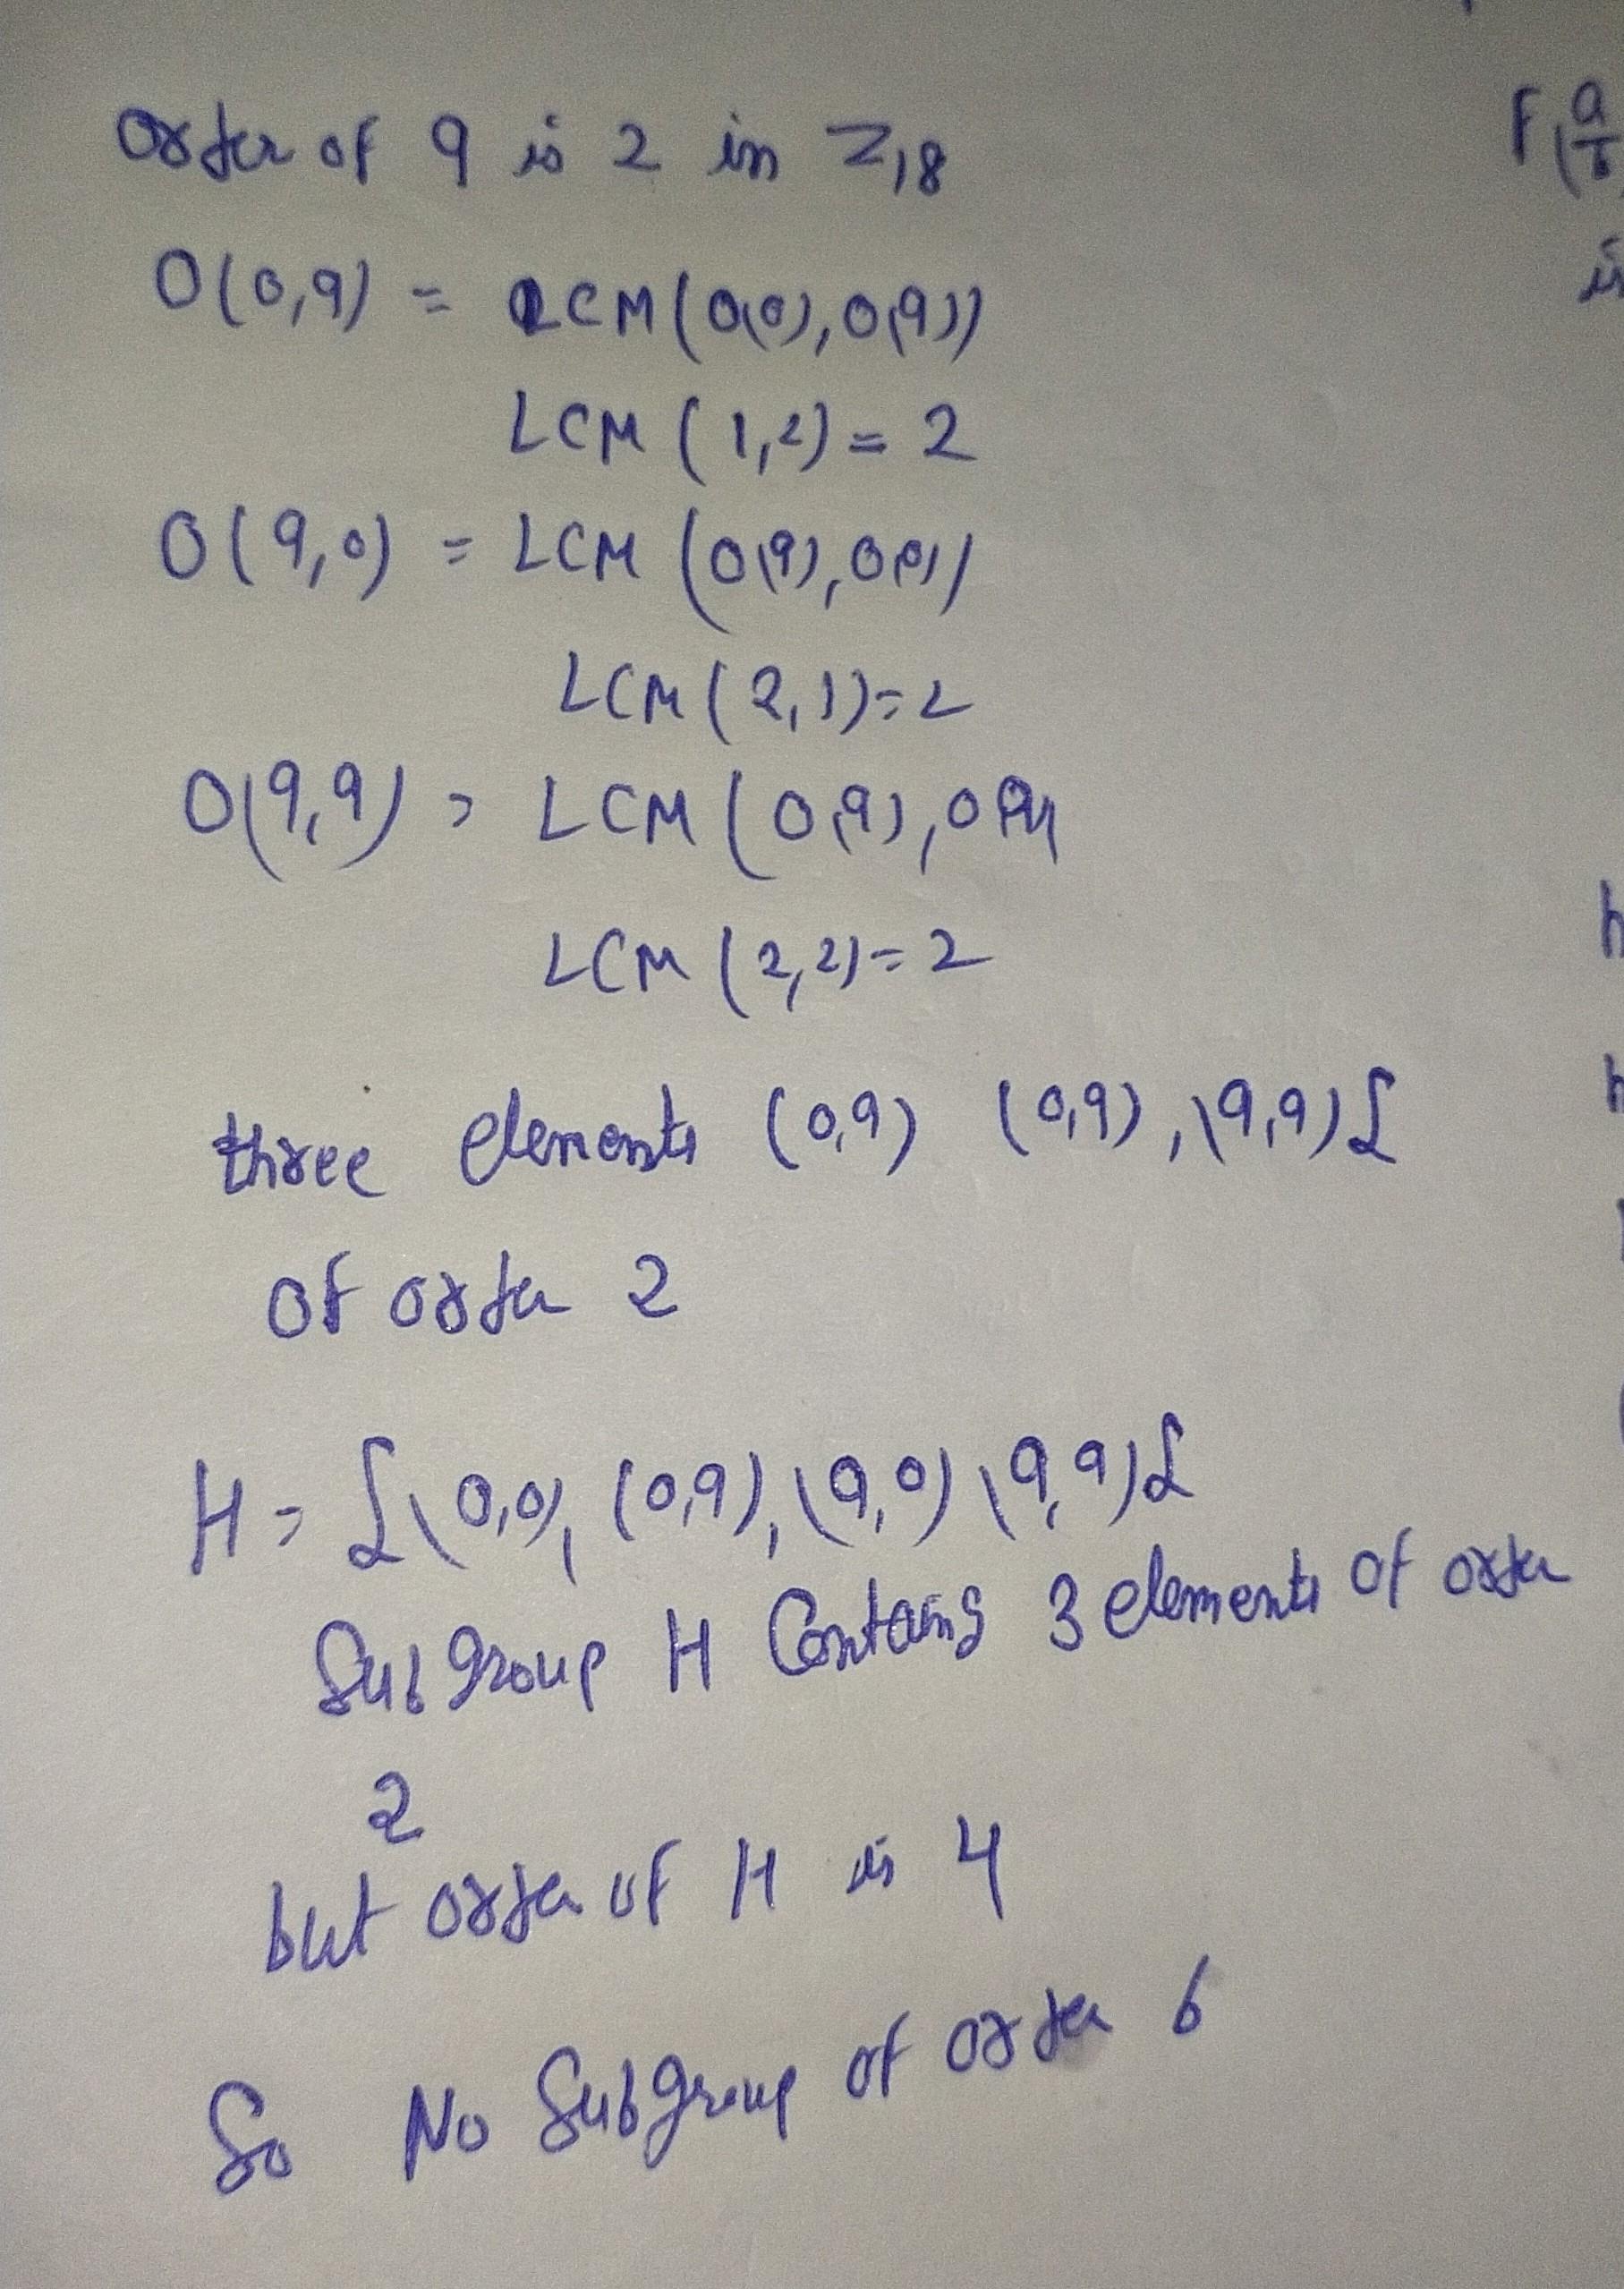 Order of 9 is 2 in Z18
O(0,9) = LCM(O(0),O(9))
LCM (1,2) = 2
O(9,0) = LCM (O(9),O(0))
LCM (2,1)=2
O(9,9) = LCM (O(9),O(9)
LCM (2,2)=2
three elements (0,9) (0,9),(9,9)}
of order 2
H = {(0,0), (0,9),(9,0)(9,9)}
Subgroup H Contains 3 elements of order
2
but order of H is 4
So No Subgroup of order 6
F(a/b
is
h